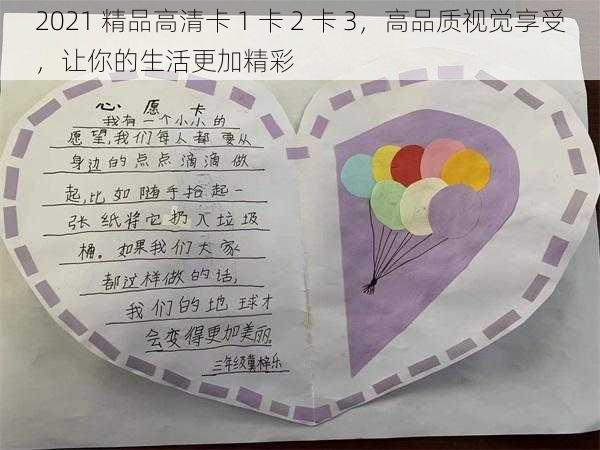 2021 精品高清卡 1 卡 2 卡 3，高品质视觉享受
，让你的生活更加精彩
心愿卡
我有一个小小的
愿望,我们每人都要从
身边的点点滴滴做
起,比如随手捡起一
张纸将它扔入垃圾
桶。如果我们大家
都这样做的话,
我们的地球才
会变得更加美丽。
三年级冀梓乐